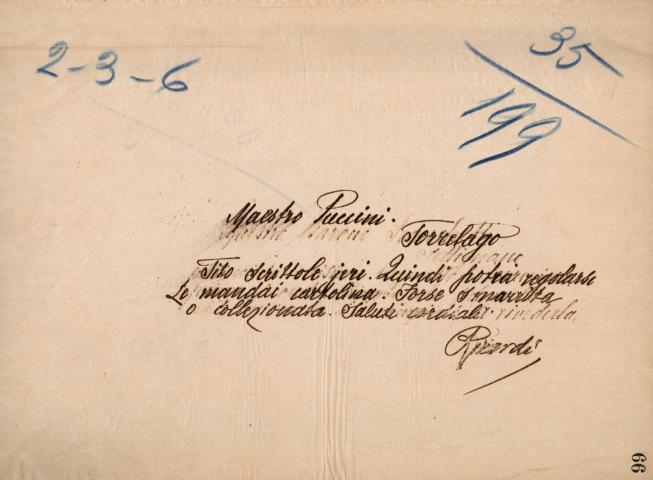 2-3-6
35
199
Maestro Puccini.
Torrelago
Tito scrittole jeri. Quindi potrà regolarsi
Le mandai cartolina. Forse smarrita
o collezionata. Saluti cordiali
Ricordi
99